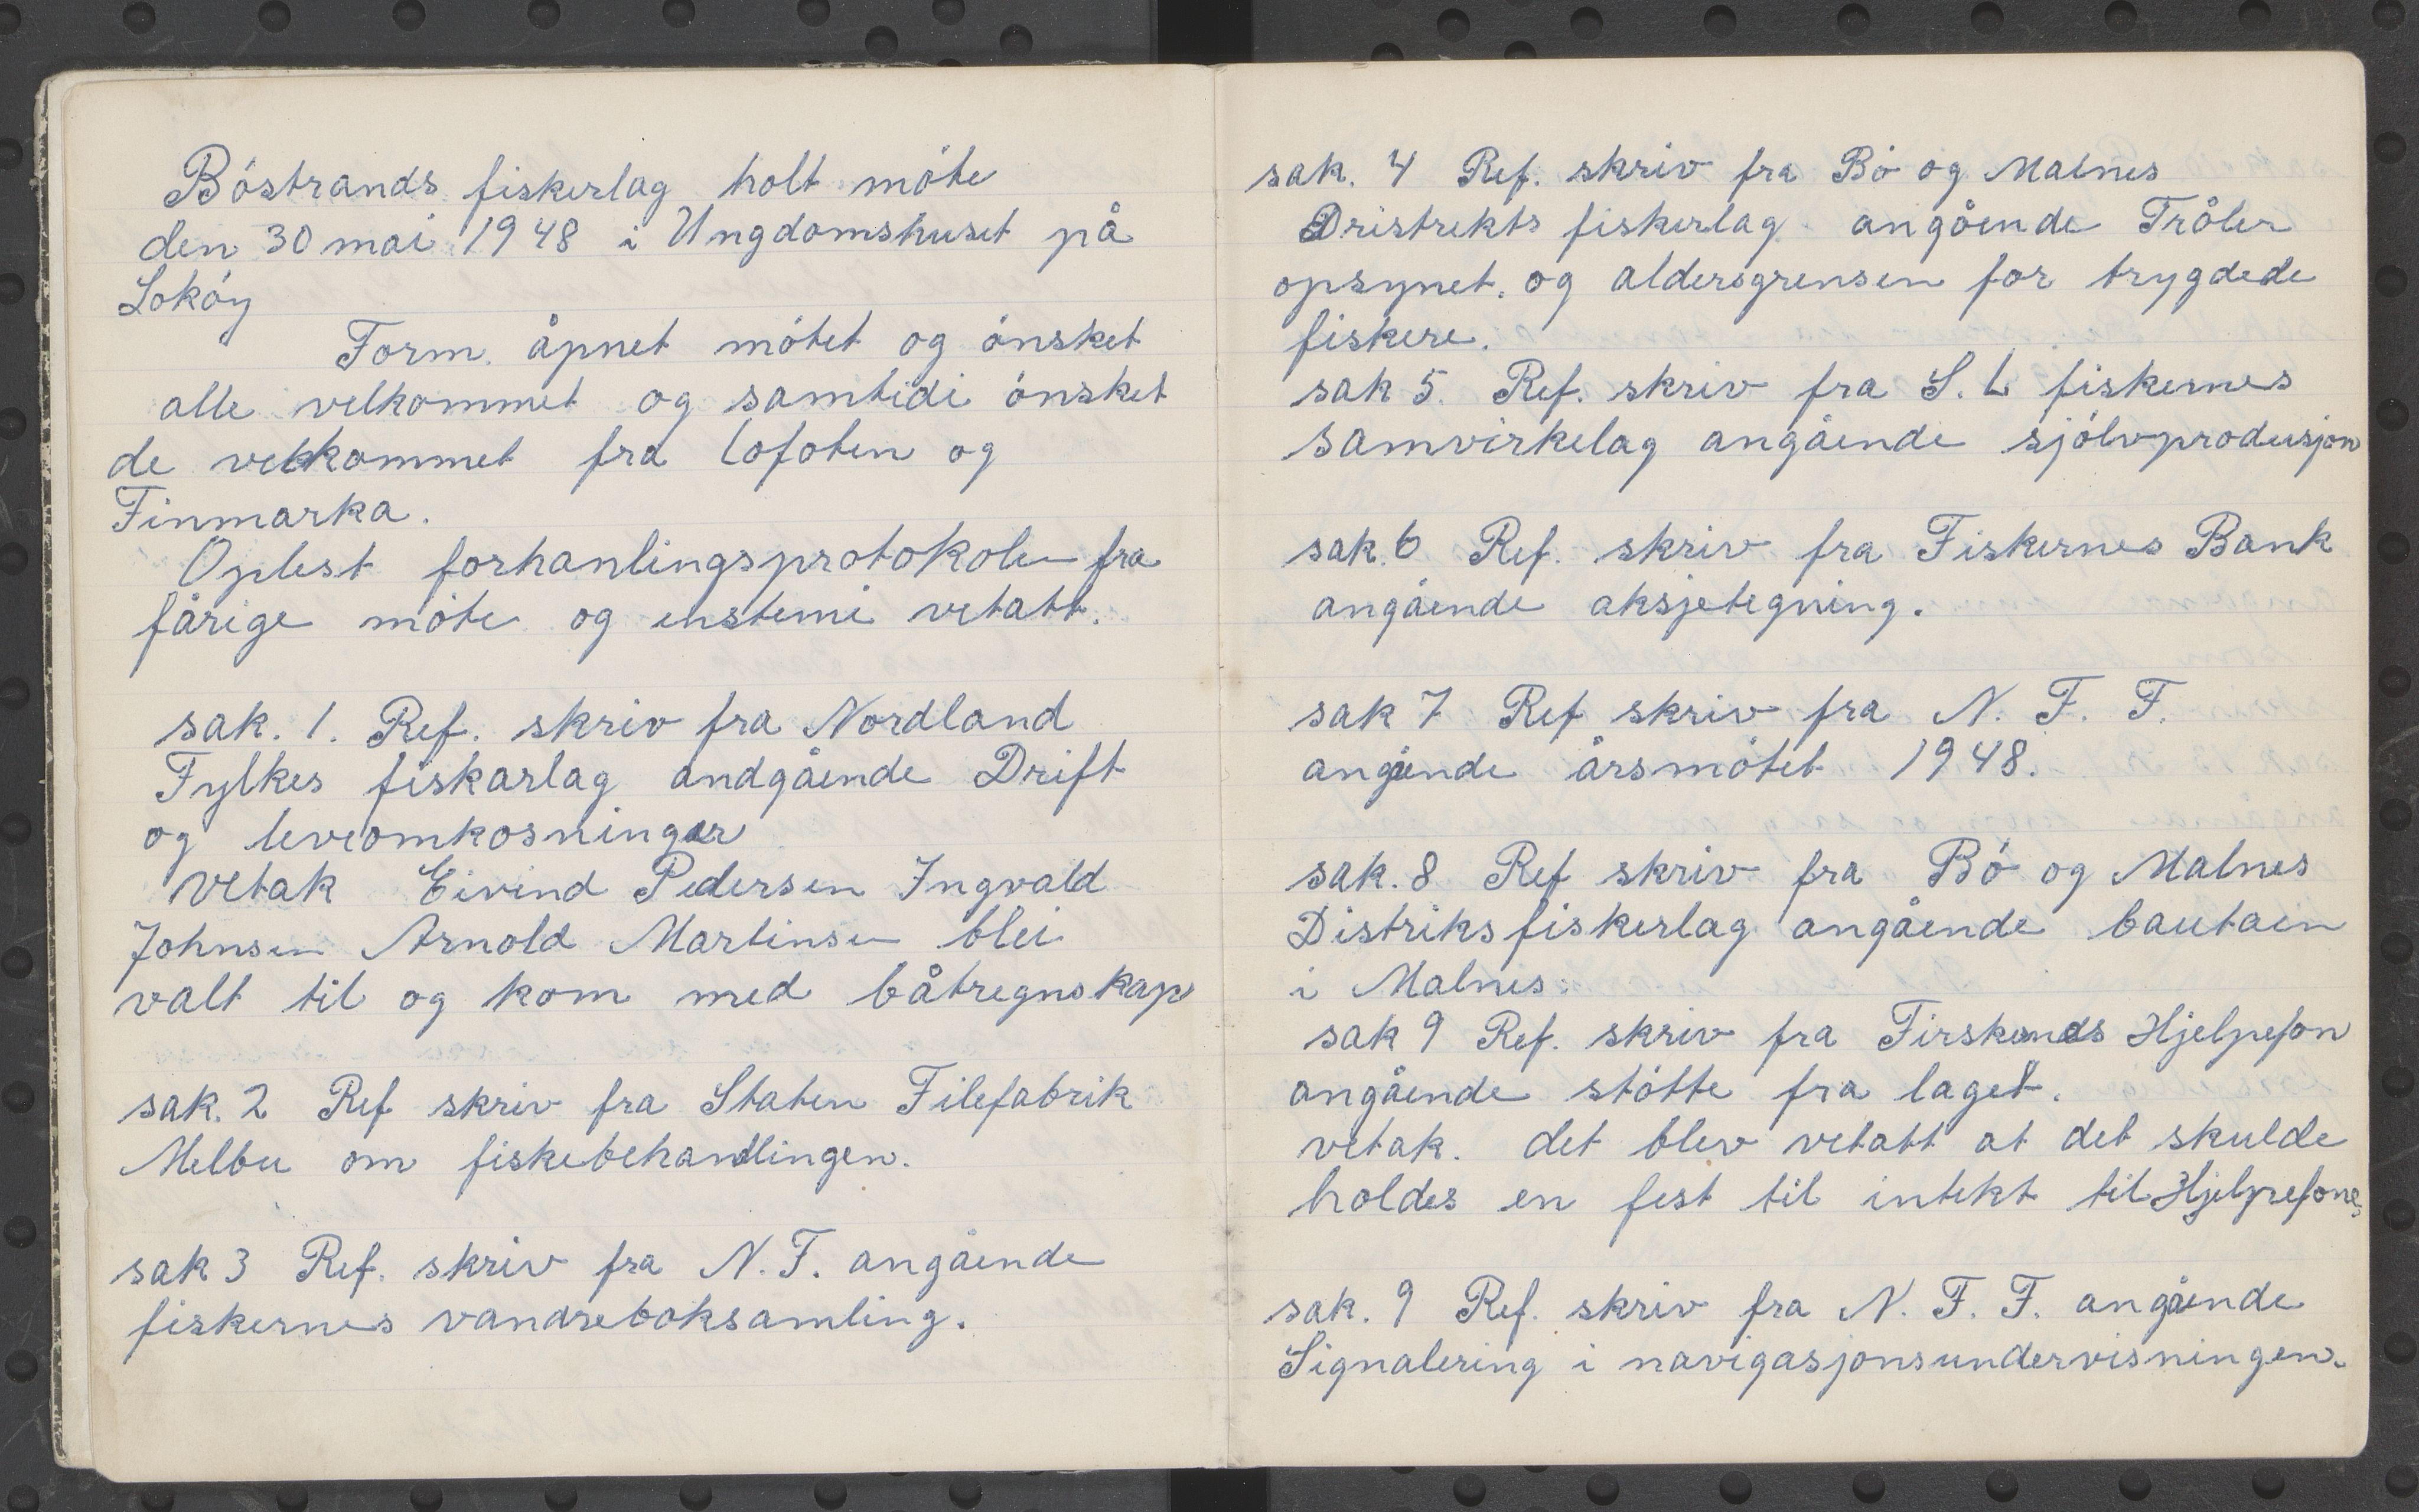 Bóstrands fiskerlag holt móte
den 30 mai 1948 i Ungdomshuset på
Lokóy
Form. åpnet mótet og ónsket
alle velkommet og samtidi ónsket
de velkommet fra Lofoten og
Finmarka.
Oplest forhanlingsprotokolen fra
fårige móte og enstemi vetatt.
sak. 1. Ref. skriv fra Nordland
Fylkes fiskarlag andgående Drift
og leveomkosninger
Vetak Eivind Pedersen Ingvald
Johnsen Arnold Martinsen blei
valt til og kom med båtregnskap
sak. 2 Ref skriv fra Staten Filefabrik
Melbu om fiskebehandlingen.
sak 3 Ref. skriv fra N. F. angående
fiskernes vandreboksamling.
sak. 4 Ref. skriv fra Bó og Malnes
Dristrekts fiskerlag angående Tråler
opsynet. og aldersgrensen for trygdede
fiskere.
sak 5. Ref. skriv fra S. L fiskernes
samvirkelag angående sjólvprodusjon
sak. 6 Ref. skriv fra Fiskernes Bank
angående aksjetegning.
sak 7 Ref skriv fra N. F. F.
angående årsmótet 1948.
sak. 8 Ref skriv fra Bó og Malnes
Distriks fiskerlag angående bautaen
i Malnes.
sak 9 Ref. skriv fra Firskendes Hjelpefon
angående stótte fra laget.
vetak. det blev vetatt at det skulde
holdes en fest til intekt til Hjelpefone
sak. 9 Ref. skriv fra N. F. F. angående
Signalering i navigasjonsundervisningen.